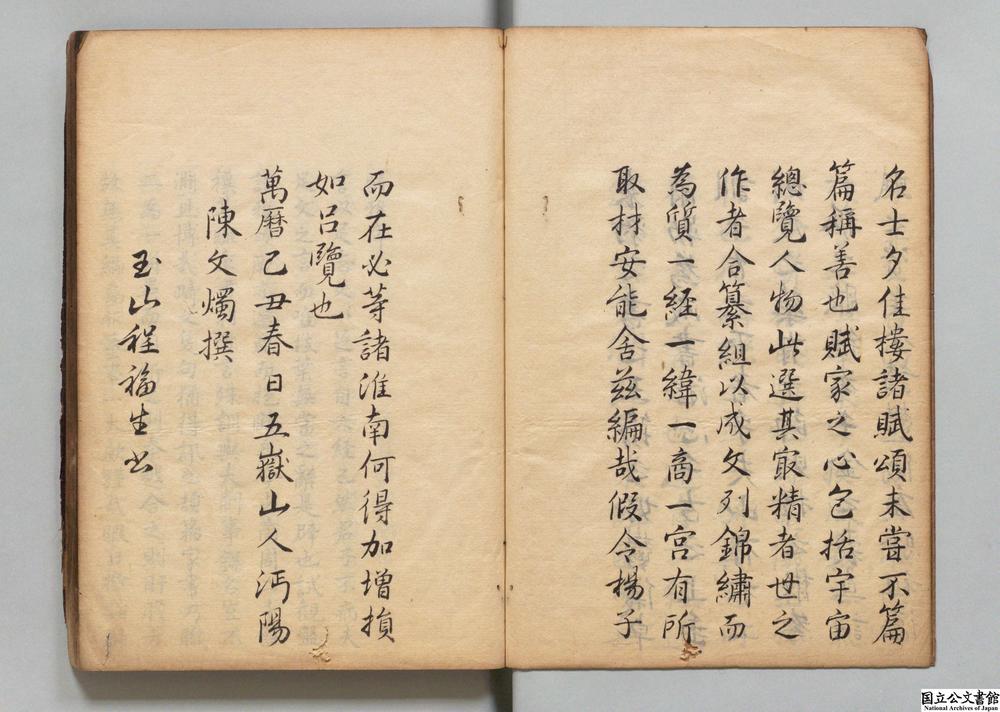 名士夕佳樓諸賦頌未嘗不篇
篇稱善也賦家之心包括宇宙
總覽人物此選其最精者世之
作者合纂組以成文列錦繡而
為質一經一緯一商一宮有所
取材安能舍茲編哉假令楊子
而在必等諸淮南何得加增損
如呂覽也
萬曆己丑春日五嶽山人沔陽
陳文燭撰
玉山程福生書
国立公文書館
National Archives of Japan